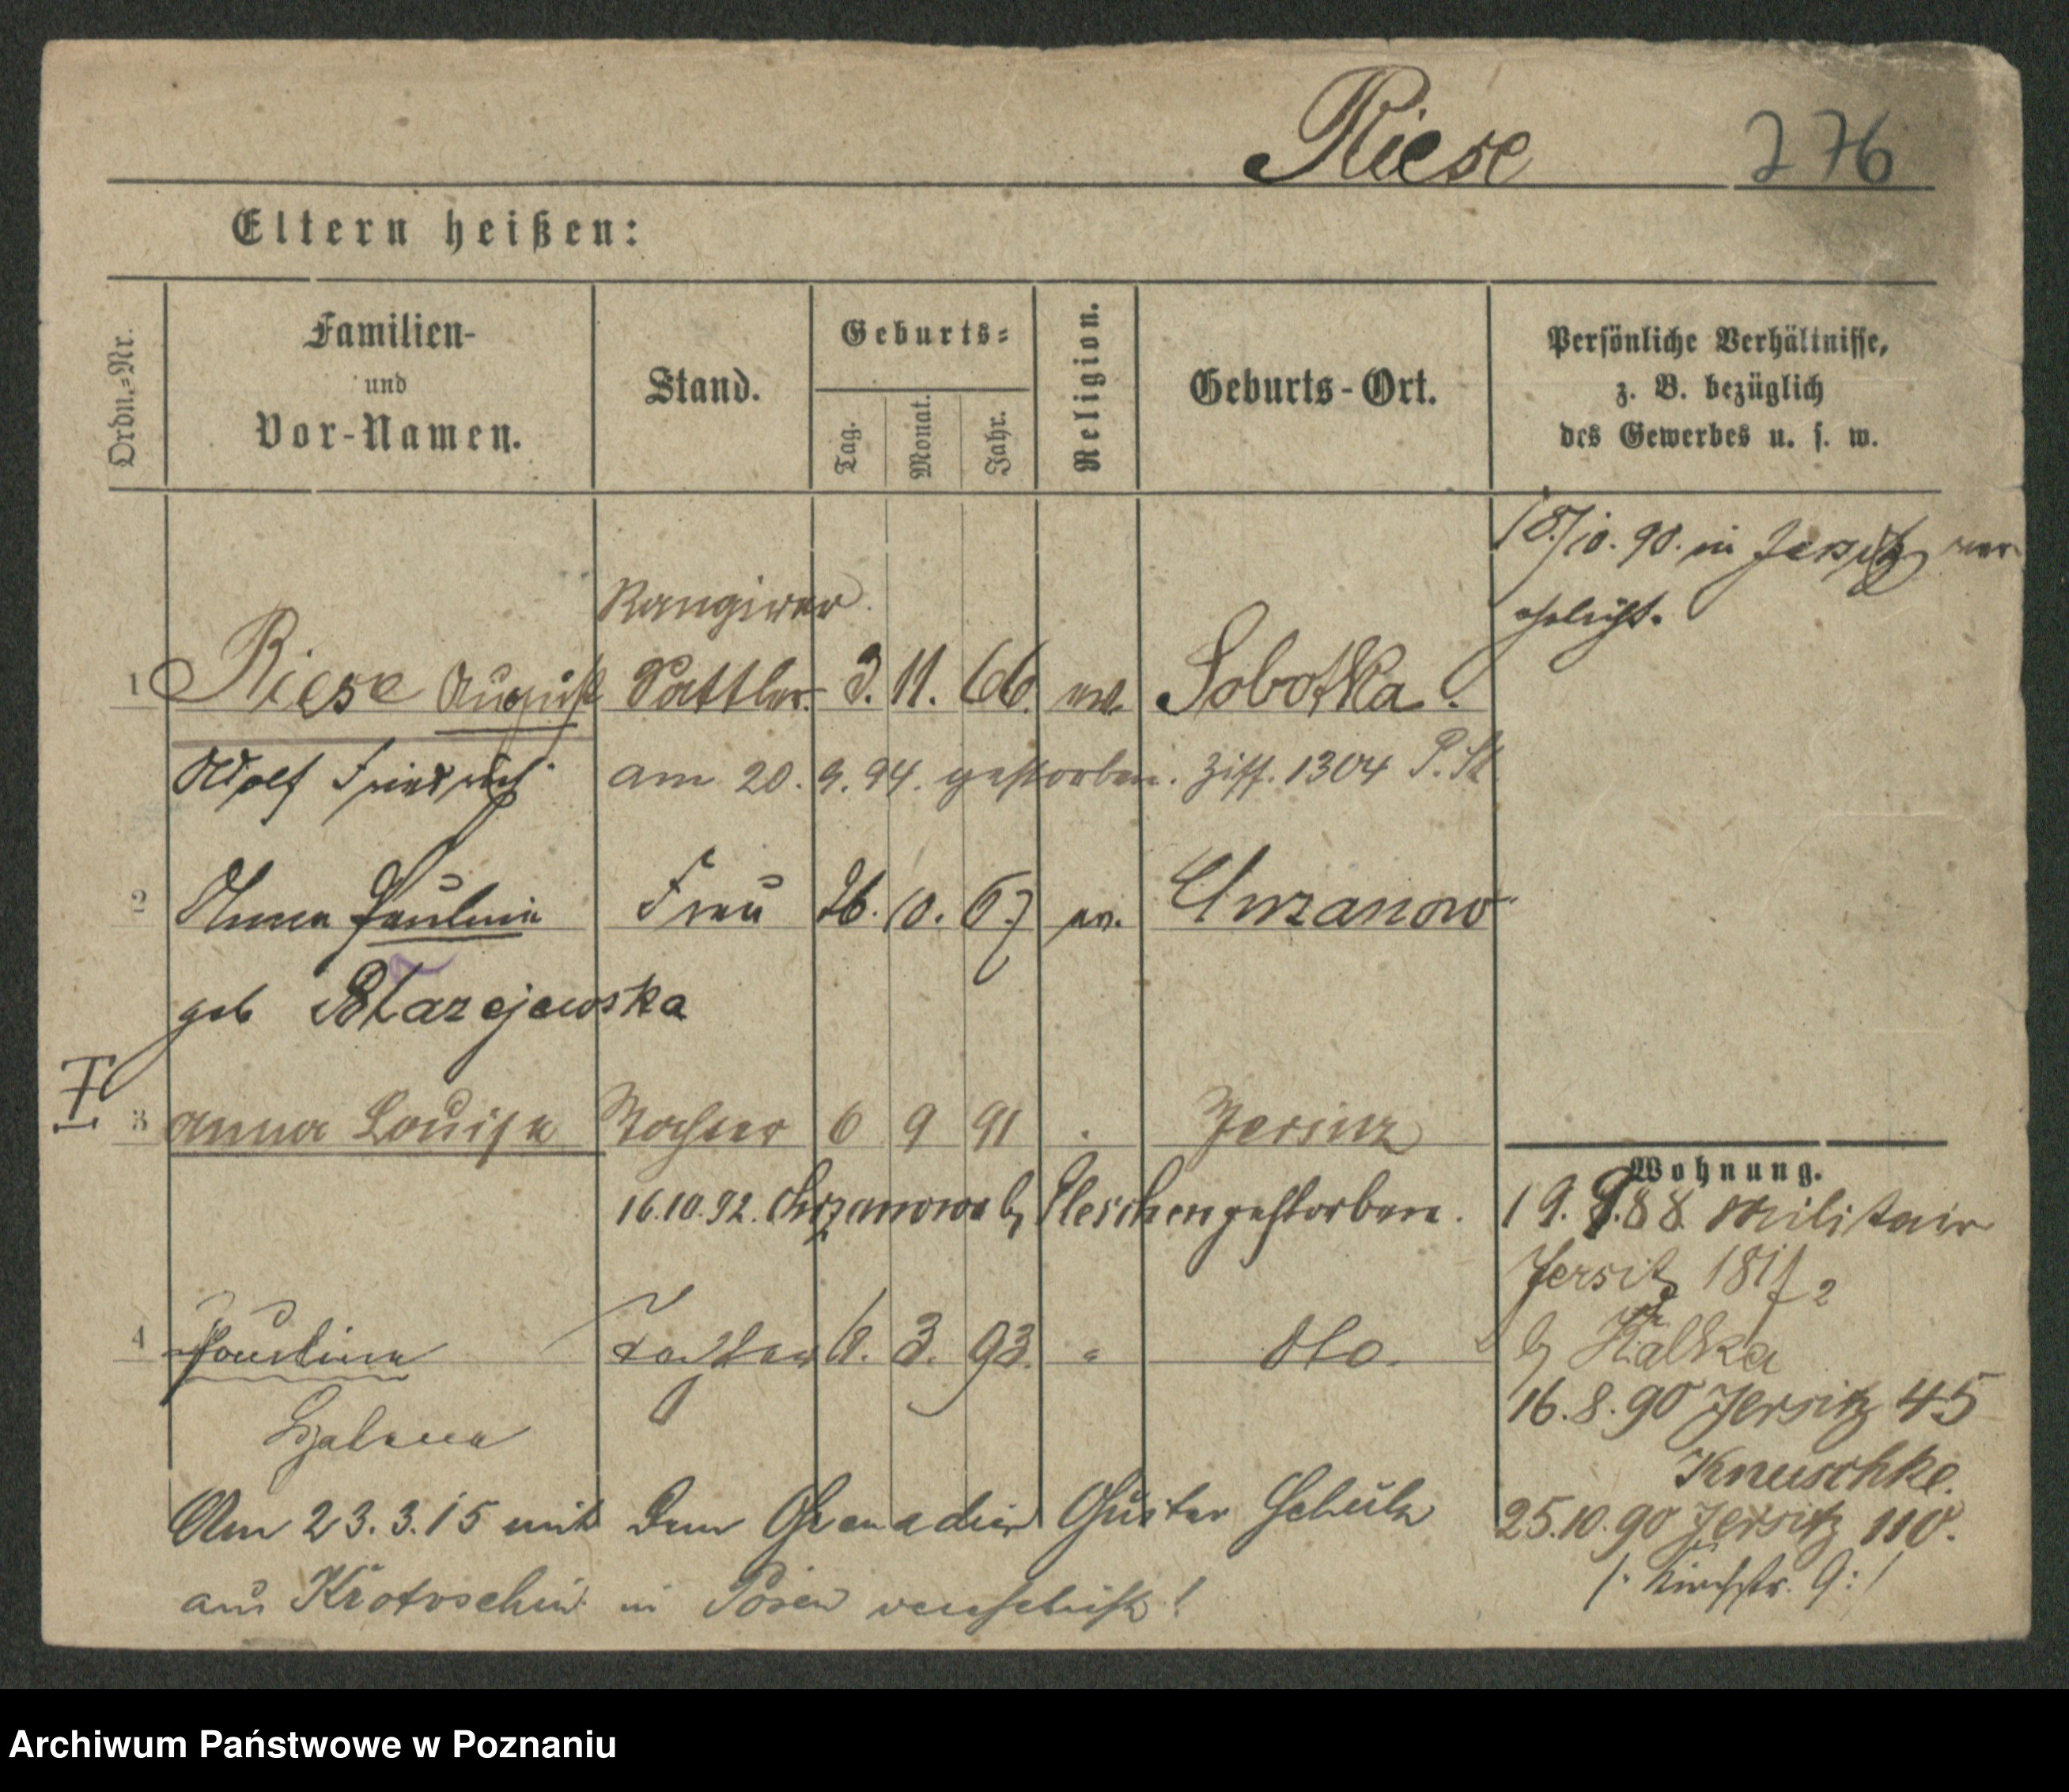 Riese 276
Eltern heißen:
Ordn.=Nr.
Familien-
und
Vor-Namen.
Stand.
Geburts=
Tag.
Monat.
Jahr.
Religion.
Geburts-Ort.
Persönliche Verhältnisse,
z. B. bezüglich
des Gewerbes u. s. w.
18./10. 90. in Jersitz ver
ehelicht.
Rangirer
1 Riese August Sattler 3. 11. 66. ev. Sobotka.
Adolf Friedrich am 20. 9. 94. gestorben. Ziff. 1304 P. St
2 Anna Paulina Frau 26. 10. 67 ev. Chrzanowo
geb Blazejewska
3 Anna Louise Tochter 6 9 91 Jersitz
16.10.92. Chrzanowo b Pleschen gestorben.
4 Paulina Tochter 3. 93. " do.
Helena
Am 23.3.15 mit dem Grenadier Gustav Schulz
aus Krotoschin in Posen verehelicht!
Wohnung.
19. 9. 88. Militair
Jersitz 181f2
b Kalka
16. 8. 90 Jersitz 45
Knuschke.
25.10.90 Jersitz 110.
/: Kirchstr. 9 :/
Archiwum Państwowe w Poznaniu